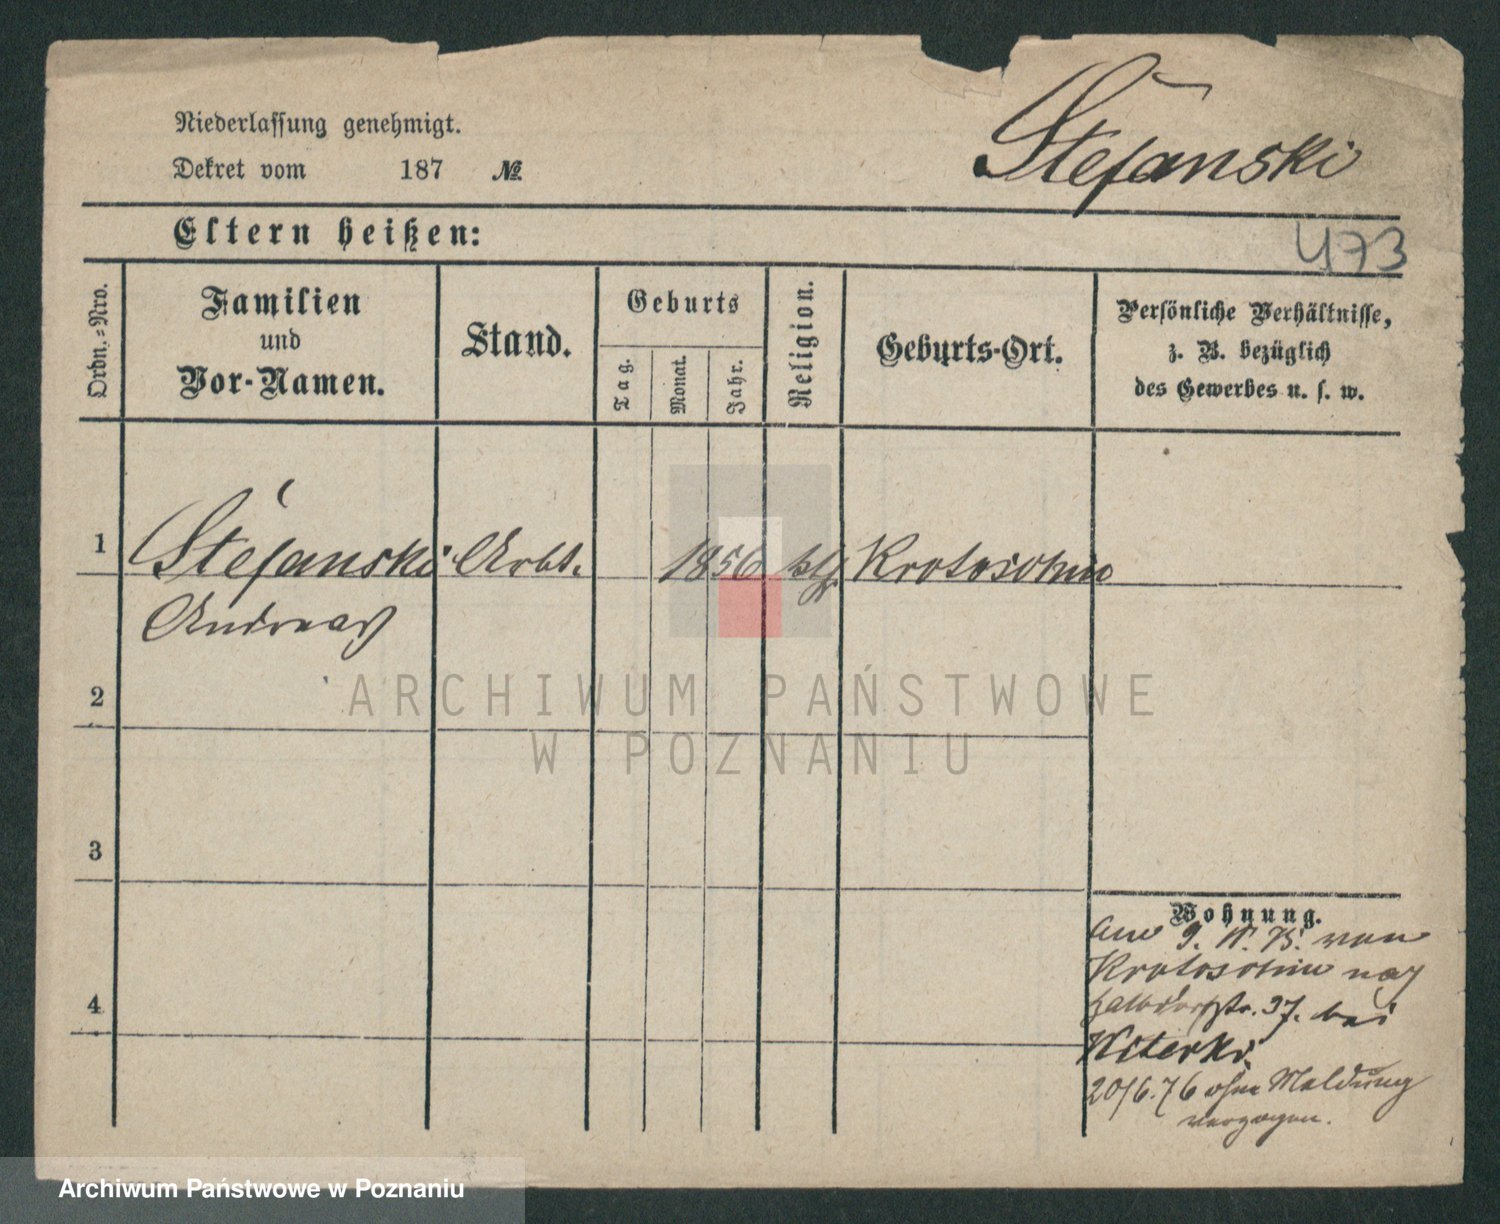 Niederlassung genehmigt.
Dekret vom 187 №
Stefanski
Eltern heißen:
473
Ordn.-Nro.
Familien
und
Vor-Namen.
Stand.
Geburts
Tag.
Monat.
Jahr.
Religion.
Geburts-Ort.
Persönliche Verhältnisse,
z. B. bezüglich
des Gewerbes u. s. w.
1 Stefanski Arbt. 1856 kth Krotoschin
Andreas
2
3
4
Wohnung.
am 9. 11. 75. von
Krotoschin nach
Halbdorfstr. 37. bei
Witerki.
20/6.76 ohne Meldung
verzogen.
ARCHIWUM PAŃSTWOWE
W POZNANIU
Archiwum Państwowe w Poznaniu